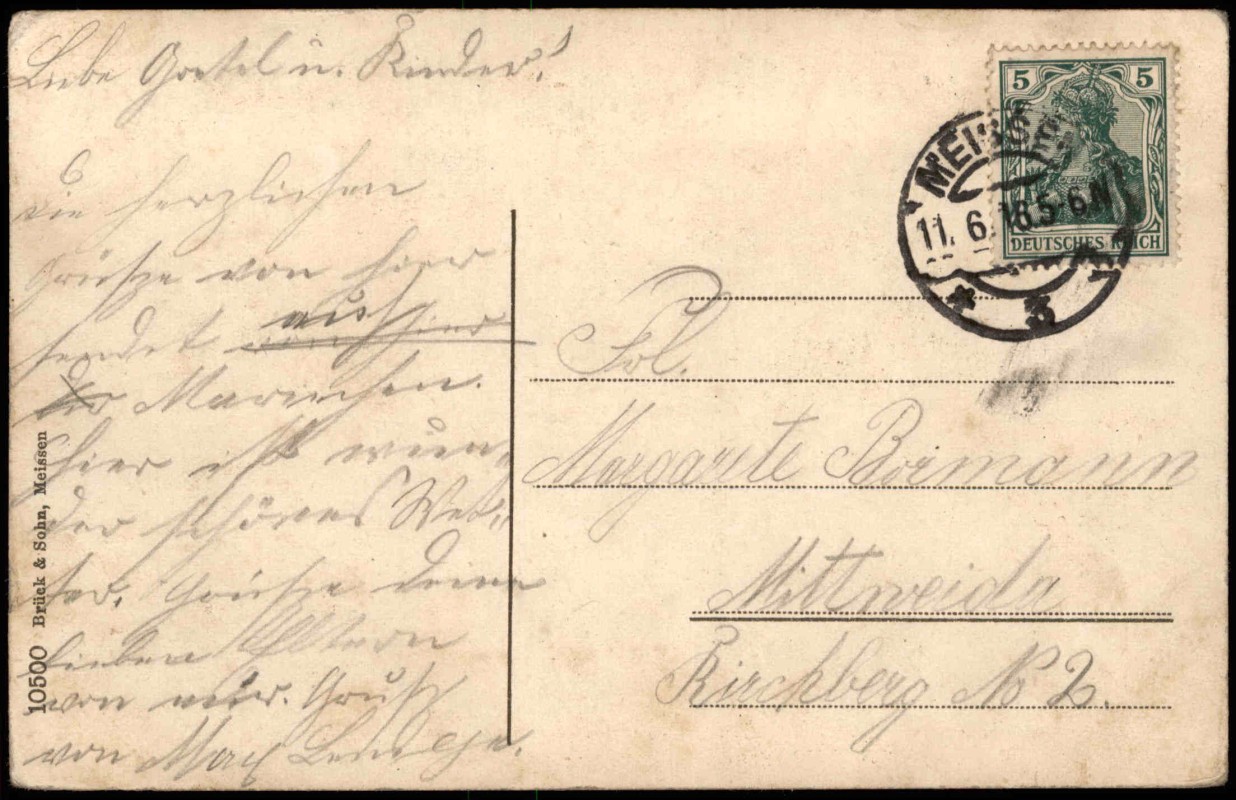 Liebe Gretel u. Kinder!
die herzlichen
Grüße von hier
sendet aus
Marienchen.
Hier ist wun-
der schönes Wet-
ter. Grüße deine
lieben Eltern
von mir. Gruß
von Max
10500 Brück & Sohn, Meissen
5 5
DEUTSCHES REICH
MEISS
11. 6. 16. 5-6 N
* 3
Frl.
Margarte Bormann
Mittweida
Kirchberg No 2.